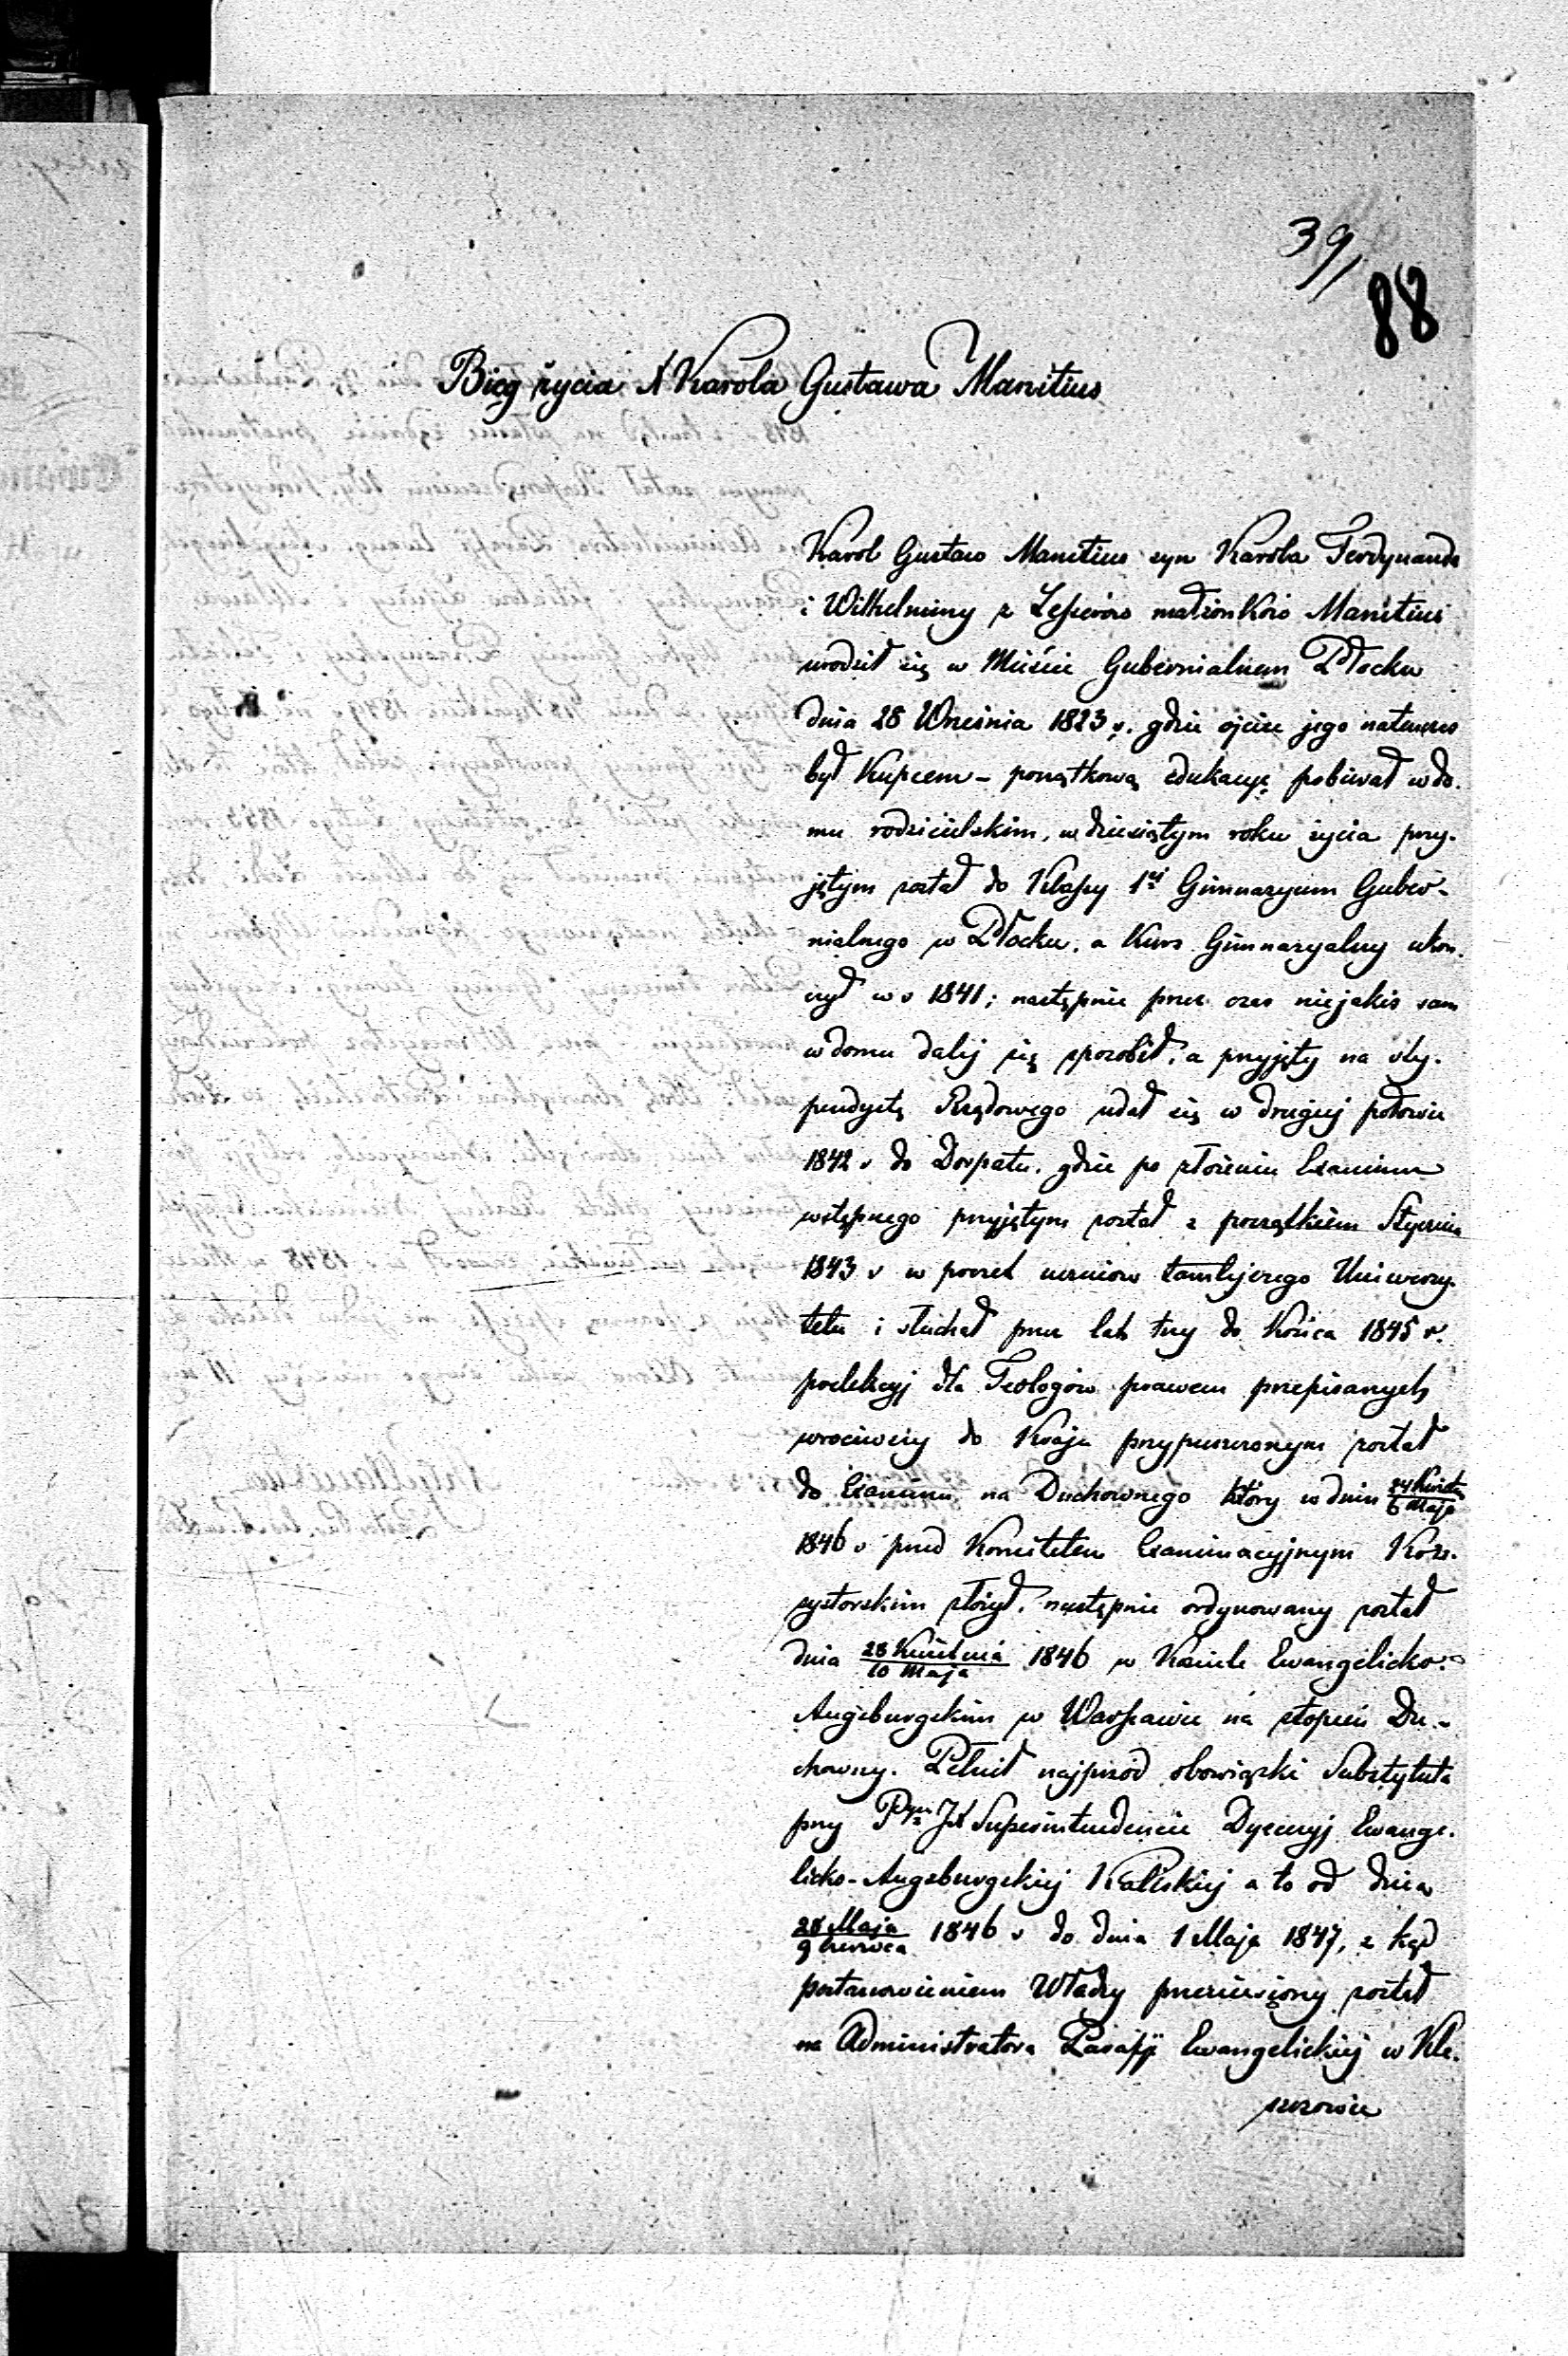 39/
88
Bieg życia X Karola Gustawa Manitius
Karol Gustaw Manitius syn Karola Ferdynanda
i Wilhelminy z małżonków Manitius
urodził się w Mieście Gubernialnem Płocku
dnia 28 Września 1823 r. gdzie ojciec jego natenczas
był Kupcem – początkową edukacyę pobierał w do-
mu rodzicielskim, w dziesiątym roku życia przy-
jętym został do Klassy 1éj Gimnazyum Guber-
nialnego w Płocku, a Kurs Gimnazyalny ukoń-
czył w r 1841; następnie przez czas niejakiś sam
w domu dalej się sposobił, a przyjęty na sty-
pendystę Rządowego udał się w drugiej połowie
1842 r do Dorpatu, gdzie po złożeniu Examinu
wstępnego przyjętym został z początkiem Stycznia
1843 r w poczet uczniów tamtejszego Uniwersy-
tetu i słuchał przez lat trzy do Końca 1845 r.
prelekcyj dla Teologów prawem przepisanych
wróciwszy do Kraju przypuszczonym został
do Examinu na Duchownego który w dniu 24 Kwiet./6 Maja
1846 r przed Komitetem Examinacyjnym Kon-
systorskim złożył, następnie ordynowany został
dnia 28 Kwietnia/10 Maja 1846 w Kościele Ewangelicko-
Augsburgskim w Warszawie na stopień Du-
chowny. Pełnił najprzód obowiązki Substytuta
przy JX Superintendencie Dyecezyj Ewange-
licko-Augsburgskiej Kaliskiej a to od dnia
28 Maja/9 Czerwca 1846 r do dnia 1 Maja 1847, z kąd
postanowieniem Władzy przeniesiony został
na Administratora Parafji Ewangelickiej w Kle-
szczowie